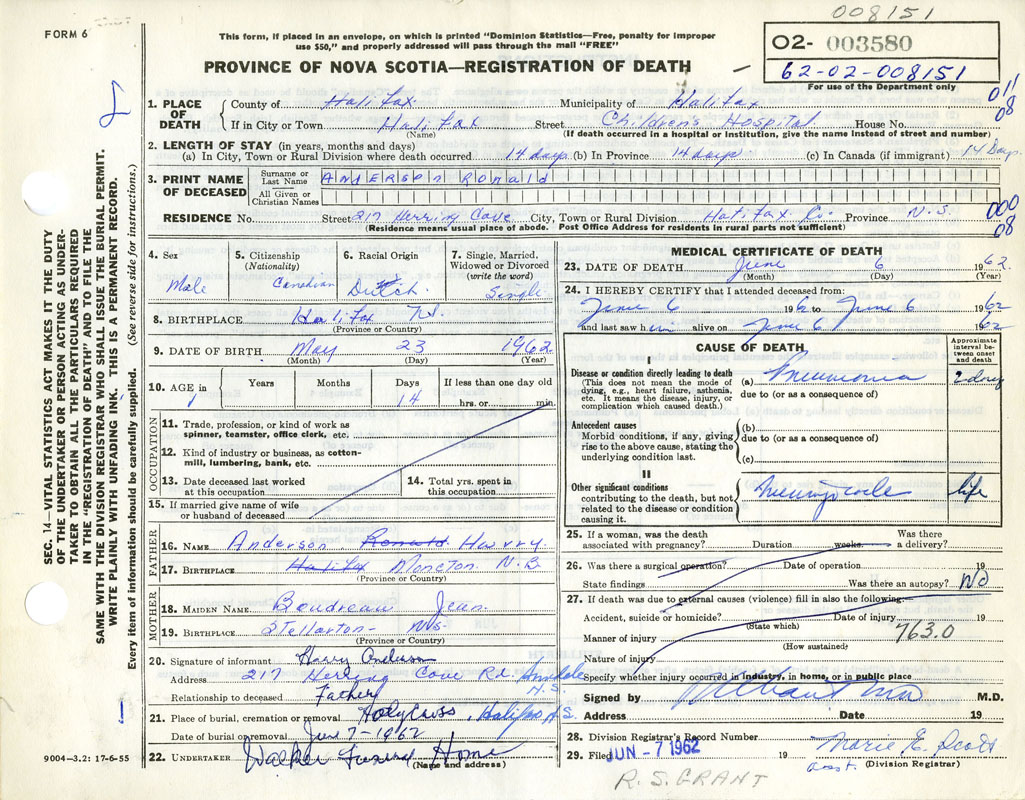 008151
FORM 6
This form, if placed in an envelope, on which is printed "Dominion Statistics—Free, penalty for improper
use $50," and properly addressed will pass through the mail "FREE"
PROVINCE OF NOVA SCOTIA—REGISTRATION OF DEATH
02- 003580
62-02-008151
For use of the Department only
011
08
SEC. 14—VITAL STATISTICS ACT MAKES IT THE DUTY
OF THE UNDERTAKER OR PERSON ACTING AS UNDER-
TAKER TO OBTAIN ALL THE PARTICULARS REQUIRED
IN THE "REGISTRATION OF DEATH" AND TO FILE THE
SAME WITH THE DIVISION REGISTRAR WHO SHALL ISSUE THE BURIAL PERMIT.
WRITE PLAINLY WITH UNFADING INK. THIS IS A PERMANENT RECORD.
Every item of information should be carefully supplied. (See reverse side for instructions.)
1. PLACE OF DEATH County of Halifax Municipality of Halifax
If in City or Town Halifax Street Children's Hospital House No.
(Name) (If death occurred in a hospital or institution, give the name instead of street and number)
2. LENGTH OF STAY (in years, months and days)
(a) In City, Town or Rural Division where death occurred 14 days (b) In Province 14 days (c) In Canada (if immigrant) 14 Days
3. PRINT NAME OF DECEASED Surname or Last Name Anderson Ronald
All Given or Christian Names
RESIDENCE No. Street 217 Herring Cove City, Town or Rural Division Halifax Co. Province N.S. 000
08
(Residence means usual place of abode. Post Office Address for residents in rural parts not sufficient)
4. Sex 5. Citizenship (Nationality) 6. Racial Origin 7. Single, Married, Widowed or Divorced (write the word)
Male Canadian Dutch Single
8. BIRTHPLACE Halifax N.S.
(Province or Country)
9. DATE OF BIRTH May 23 1962
(Month) (Day) (Year)
10. AGE in Years Months Days If less than one day old
14 hrs. or min.
OCCUPATION
11. Trade, profession, or kind of work as
spinner, teamster, office clerk, etc.
12. Kind of industry or business, as cotton-
mill, lumbering, bank, etc.
13. Date deceased last worked at this occupation 14. Total yrs. spent in this occupation
15. If married give name of wife
or husband of deceased
FATHER
16. NAME Anderson Ronald Harry
17. BIRTHPLACE Halifax Moncton N.B
(Province or Country)
MOTHER
18. MAIDEN NAME Boudreau Jean
19. BIRTHPLACE Stellarton N.S.
(Province or Country)
20. Signature of informant Harry Anderson
Address 217 Herring Cove Rd. Armdale
N.S.
Relationship to deceased Father
21. Place of burial, cremation or removal Holy Cross, Halifax N.S.
Date of burial or removal June 7-1962
22. UNDERTAKER Walker Funeral Home
(Name and address)
9004—3.2: 17-6-55
MEDICAL CERTIFICATE OF DEATH
23. DATE OF DEATH June 6 1962
(Month) (Day) (Year)
24. I HEREBY CERTIFY that I attended deceased from:
June 6 1962 to June 6 1962
and last saw him alive on June 6 1962
CAUSE OF DEATH
Approximate interval between onset and death
I
Disease or condition directly leading to death
(This does not mean the mode of
dying, e.g., heart failure, asthenia,
etc. It means the disease, injury, or
complication which caused death.)
(a) Pneumonia 2 days
due to (or as a consequence of)
Antecedent causes
Morbid conditions, if any, giving
rise to the above cause, stating the
underlying condition last.
(b)
due to (or as a consequence of)
(c)
II
Other significant conditions
contributing to the death, but not
related to the disease or condition
causing it.
Meningocele life
25. If a woman, was the death
associated with pregnancy? Duration weeks. Was there a delivery?
26. Was there a surgical operation? Date of operation 19
State findings Was there an autopsy? No
27. If death was due to external causes (violence) fill in also the following:
Accident, suicide or homicide? Date of injury 19
(State which)
763.0
Manner of injury
(How sustained)
Nature of injury
Specify whether injury occurred in industry, in home, or in public place
Signed by M.D.
Address Date 19
28. Division Registrar's Record Number
29. Filed JUN -7 1962 19 Marie E. Scott
asst. (Division Registrar)
R.S. GRANT